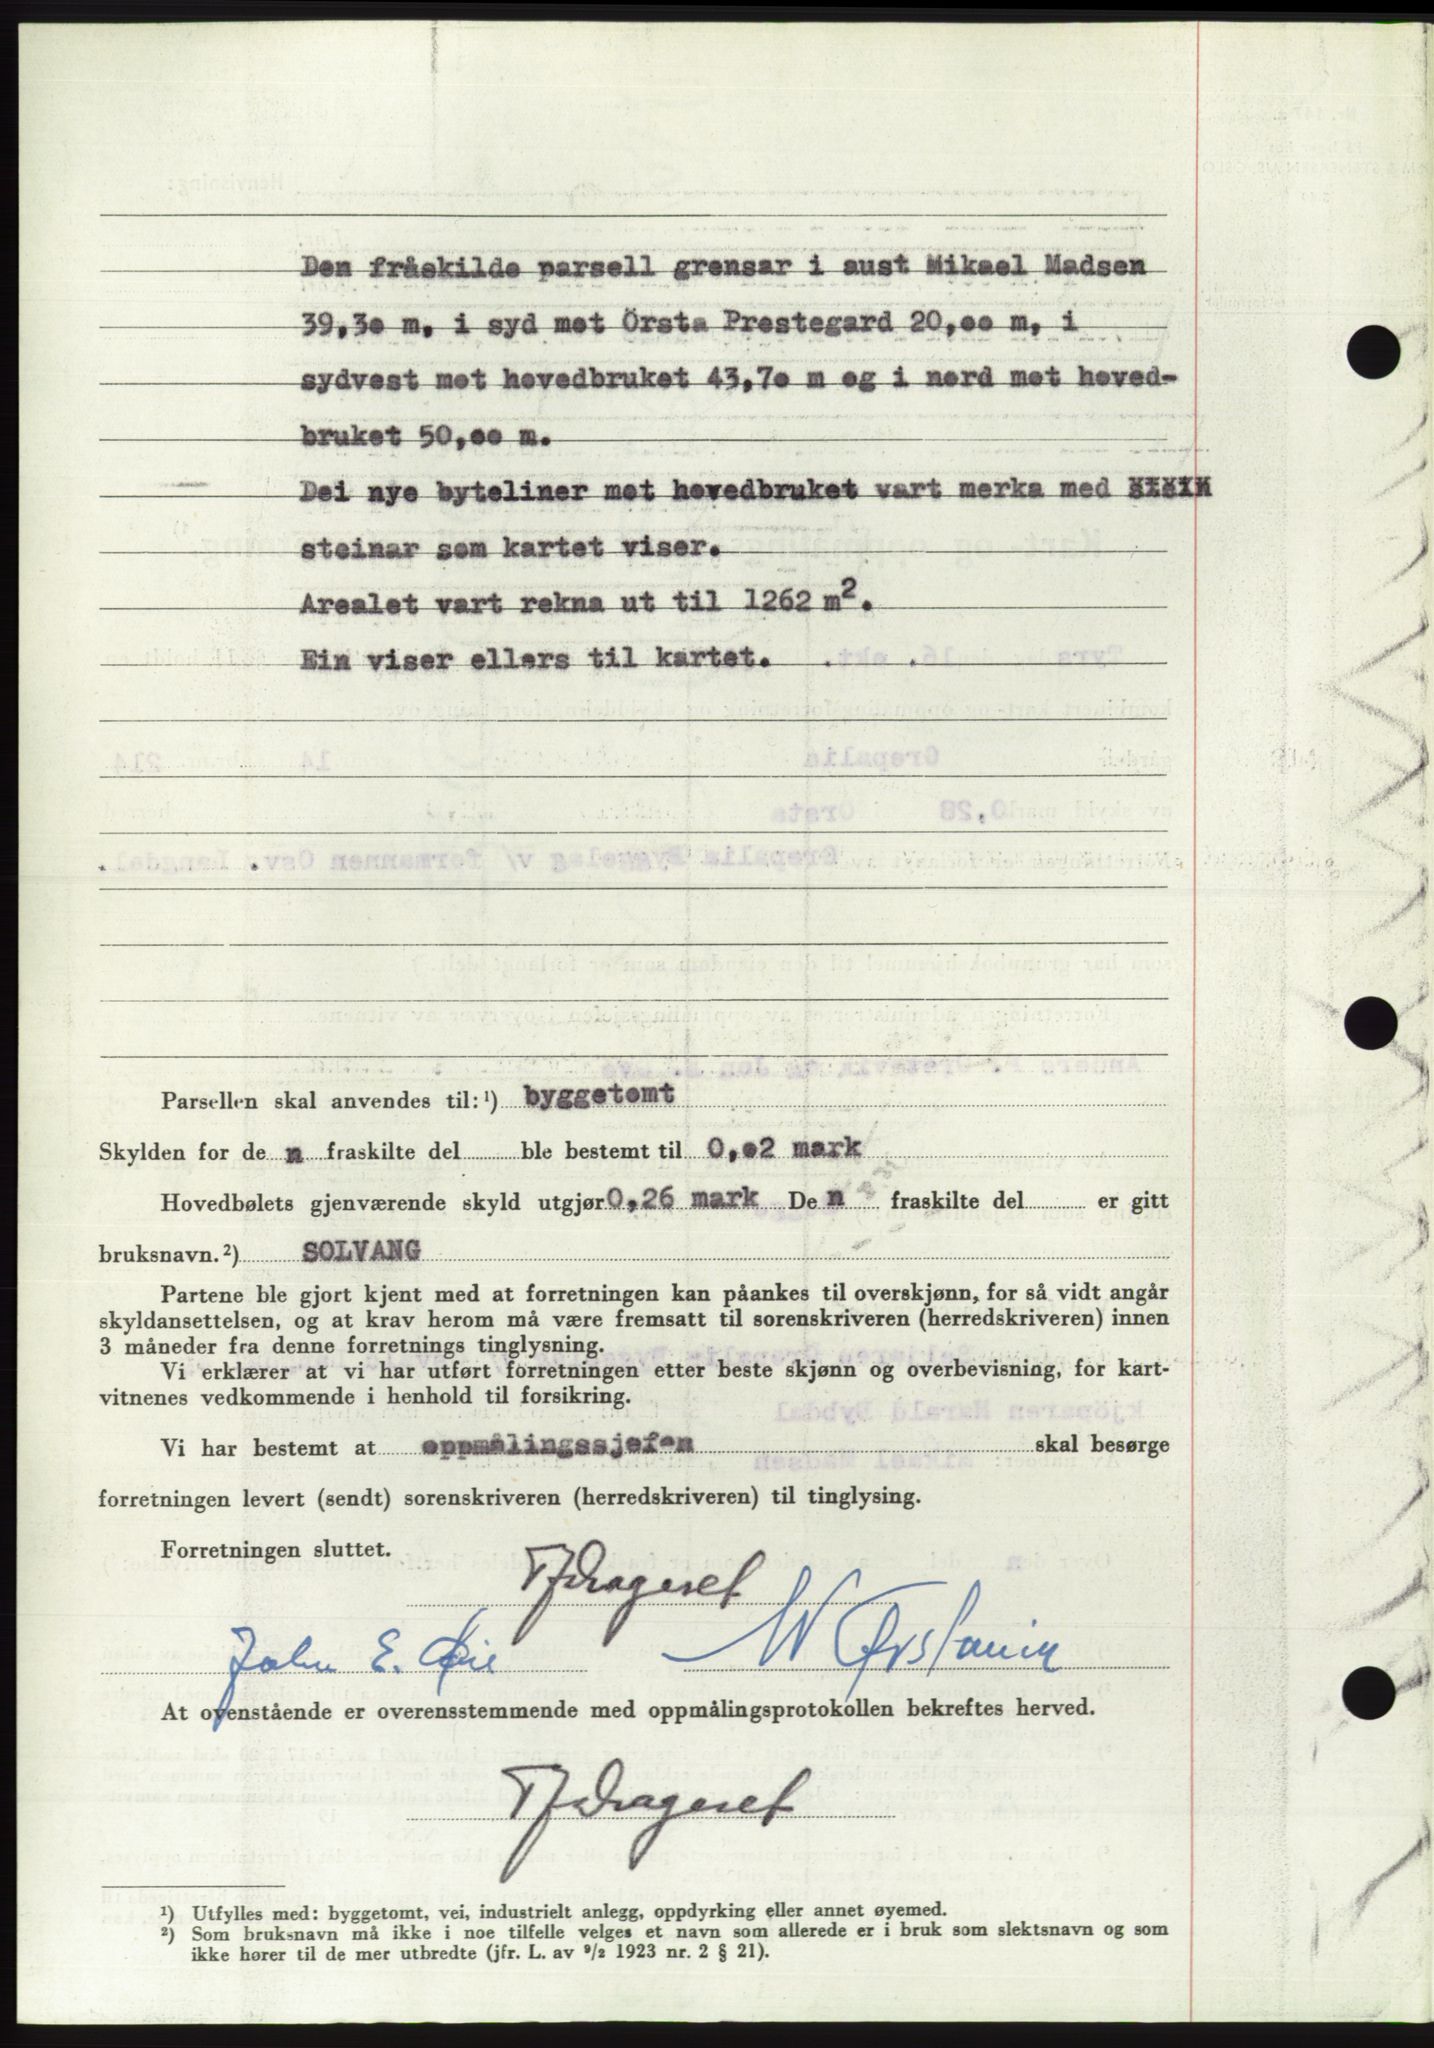 Den fråskilde parsell grensar i aust Mikael Madsen
39,30 m, i syd mot Örsta Prestegard 20,00 m, i
sydvest mot hovedbruket 43,70 m og i nord mot hoved-
bruket 50,00 m.
Dei nye byteliner mot hovedbruket vart merka med
steinar som kartet viser.
Arealet vart rekna ut til 1262 m².
Ein viser ellers til kartet.
Parsellen skal anvendes til: ¹) byggetomt
Skylden for de n fraskilte del ble bestemt til 0,02 mark
Hovedbølets gjenværende skyld utgjør 0,26 mark De n fraskilte del er gitt
bruksnavn. ²) SOLVANG
Partene ble gjort kjent med at forretningen kan påankes til overskjønn, for så vidt angår
skyldansettelsen, og at krav herom må være fremsatt til sorenskriveren (herredskriveren) innen
3 måneder fra denne forretnings tinglysning.
Vi erklærer at vi har utført forretningen etter beste skjønn og overbevisning, for kart-
vitnenes vedkommende i henhold til forsikring.
Vi har bestemt at oppmålingssjefen skal besørge
forretningen levert (sendt) sorenskriveren (herredskriveren) til tinglysing.
Forretningen sluttet.
John E. Øie
At ovenstående er overensstemmende med oppmålingsprotokollen bekreftes herved.
¹) Utfylles med: byggetomt, vei, industrielt anlegg, oppdyrking eller annet øyemed.
²) Som bruksnavn må ikke i noe tilfelle velges et navn som allerede er i bruk som slektsnavn og som
ikke hører til de mer utbredte (jfr. L. av 9/2 1923 nr. 2 § 21).